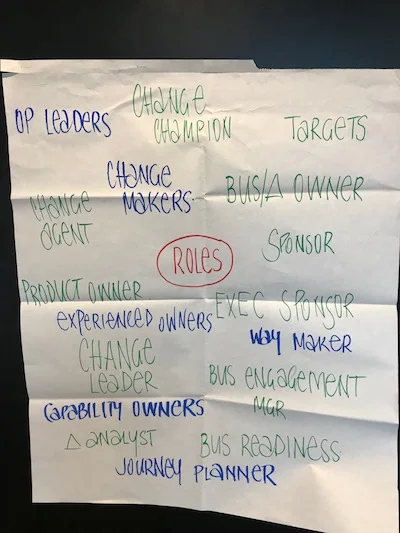 CHANGE
CHAMPION
OP LEADERS
TARGETS
CHANGE
MAKERS
BUS/Δ OWNER
CHANGE
AGENT
SPONSOR
ROLES
PRODUCT OWNER
EXEC SPONSOR
EXPERIENCED OWNERS
WAY MAKER
CHANGE
LEADER
BUS ENGAGEMENT
MGR
CAPABILITY OWNERS
Δ ANALYST
BUS READINESS
JOURNEY PLANNER